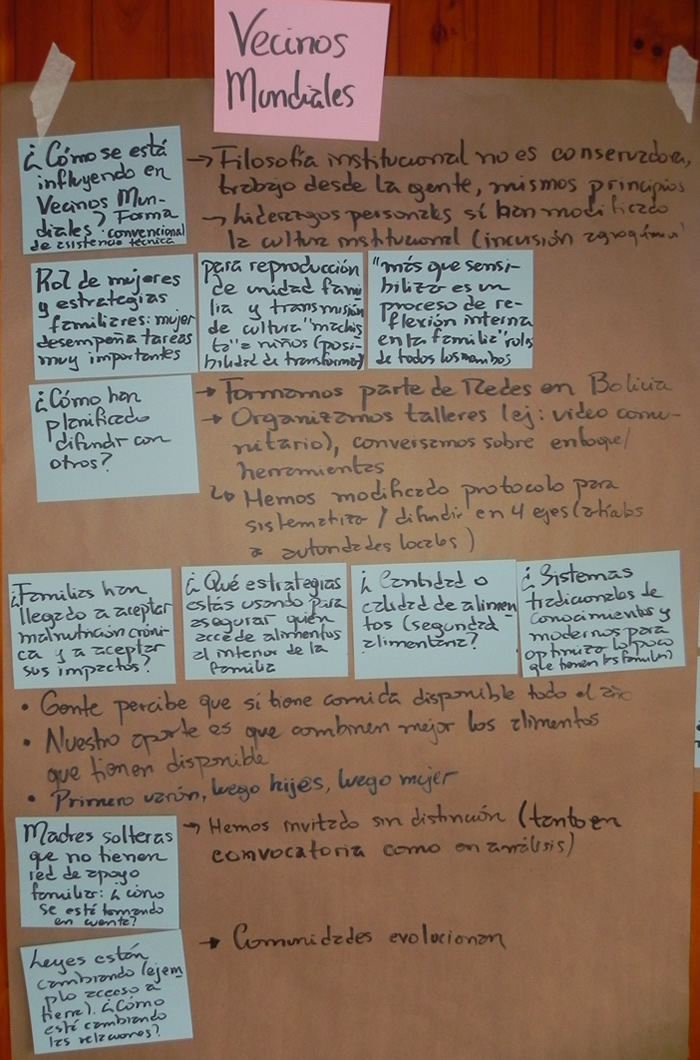 Vecinos
Mundiales
¿Cómo se está
influyendo en
Vecinos Mun-
diales? Forma
convencional
de asistencia técnica
→ Filosofía institucional no es conservadora,
trabajo desde la gente, mismos principios
→ liderazgos personales sí han modificado
la cultura institucional (incursión
Rol de mujeres
y estrategias
familiares: mujer
desempeña tareas
muy importantes
para reproducción
de unidad fami
lia y transmisión
de cultura "machis
ta" a niños (posi-
bilidad de transformar)
"más que sensi-
bilizar es un
proceso de re-
flexión interna
en la familia" roles
de todos los miembros
¿Cómo han
planificado
difundir con
otros?
→ Formamos parte de Redes en Bolivia
→ Organizamos talleres (ej: video comu-
nitario), conversamos sobre enfoque/
herramientas
↳ Hemos modificado protocolo para
sistematizar / difundir en 4 ejes
a autoridades locales)
¿Familias han
llegado a aceptar
malnutrición cróni-
ca y a aceptar
sus impactos?
¿Qué estrategias
estás usando para
asegurar quién
accede alimentos
al interior de la
familia
¿Cantidad o
calidad de alimen
tos (seguridad
alimentaria?
¿Sistemas
tradicionales de
conocimientos y
modernos para
optimizar lo poco
que tienen las familias)
• Gente percibe que sí tiene comida disponible todo el año
• Nuestro aporte es que combinen mejor los alimentos
que tienen disponible
• Primero varón, luego hij@s, luego mujer
Madres solteras
que no tienen
red de apoyo
familiar: ¿cómo
se está tomando
en cuenta?
→ Hemos invitado sin distinción (tanto en
convocatoria como en análisis)
Leyes están
cambiando (ejem
plo acceso a
tierra). ¿Cómo
está cambiando
las relaciones?
→ Comunidades evolucionan